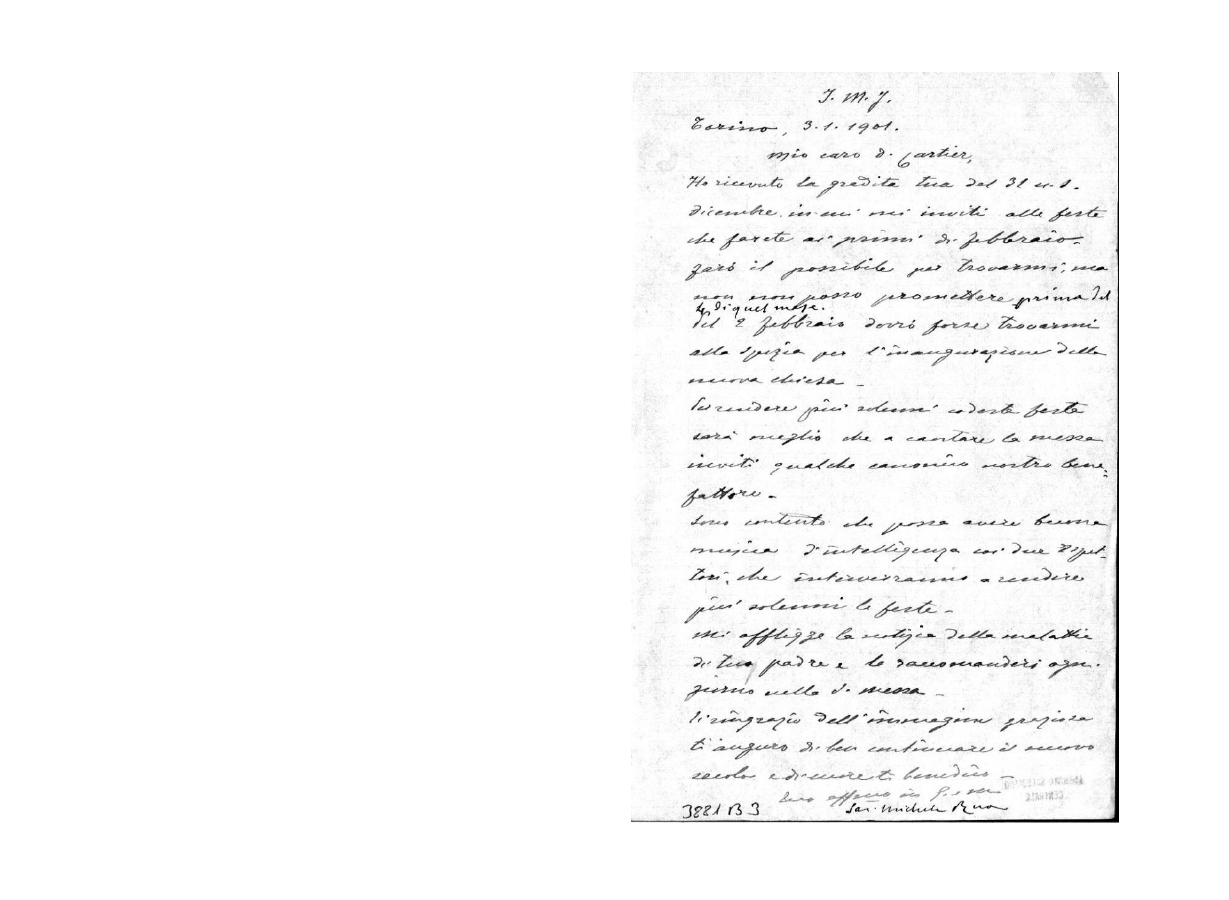 J. M. J.
Torino, 3.1.1901.
Mio caro D. Cartier,
Ho ricevuto la gradita tua del 31 u.s.
dicembre in cui mi inviti alle feste
che farete ai primi di febbraio.
farò il possibile per trovarmi, ma
non non posso promettere prima del
di quel mese.
del 2 febbraio dovrò forse trovarmi
alla Spezia per l'inaugurazione della
nuova chiesa -
Per rendere più solenni codeste feste
sarà meglio che a cantare la messa
inviti qualche canonico nostro bene=
fattore -
Sono contento che possa avere buona
musica d'intelligenza coi due Ispet-
tori, che interverranno a rendere
più solenni le feste -
Mi affligge la notizia della malattia
di tuo padre e lo raccomanderò ogni
giorno nella S. messa -
Ti ringrazio dell'immagine graziosa
ti auguro di ben continuare il nuovo
secolo e di cuore ti benedico -
Tuo affmo in G. e M.
Sac. Michele Rua
3881 B 3